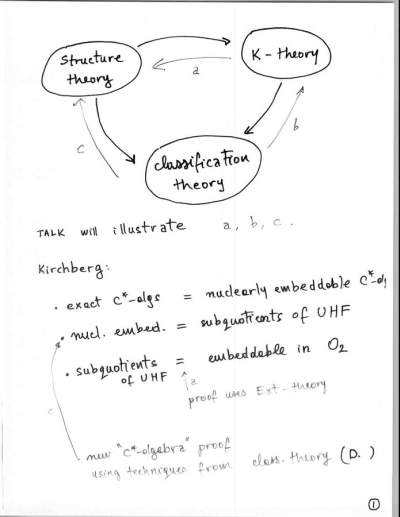 structure
theory
K - theory
a
c
b
classification
theory
TALK will illustrate a, b, c.
Kirchberg:
· exact C*-algs = nuclearly embeddable C*-alg
· nucl. embed. = subquotients of UHF
· subquotients of UHF = embeddable in O2
a
proof uses Ext-theory
c
new "C*-algebra" proof
using techniques from class. theory (D.)
1